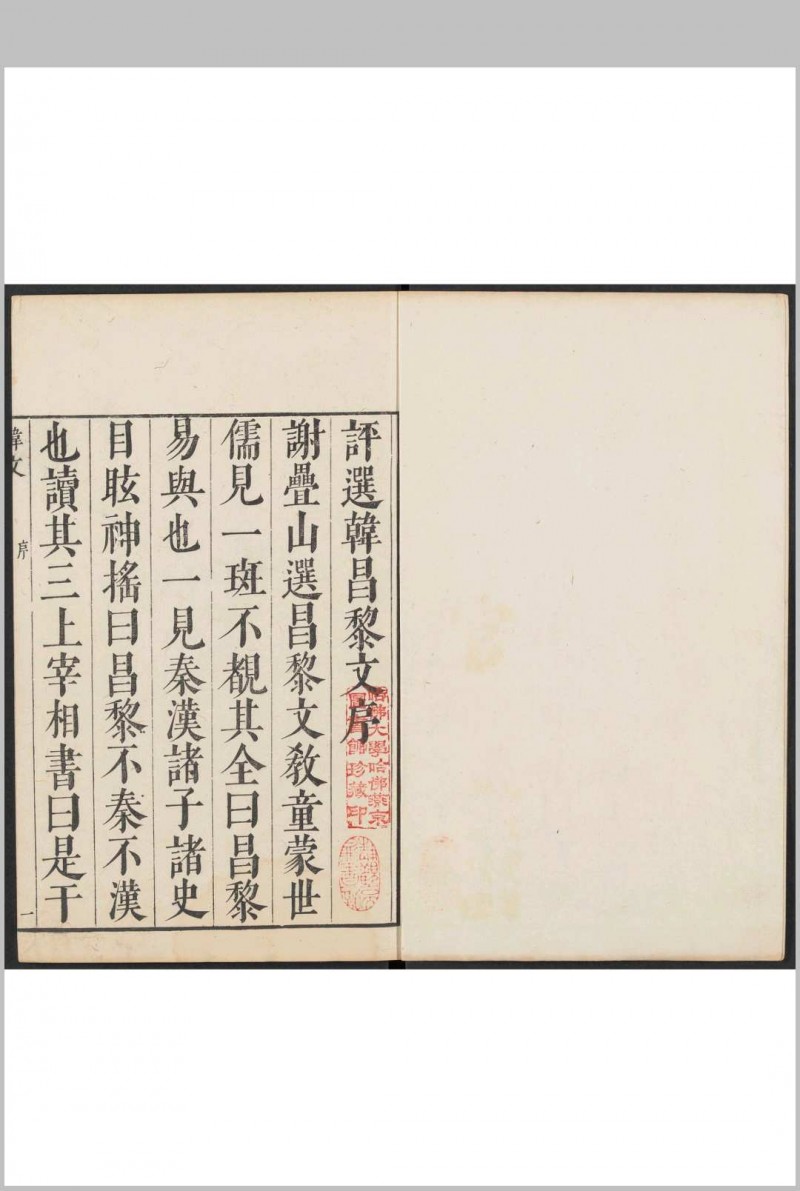 評選韓昌黎文序
謝疊山選昌黎文敎童蒙世
儒見一斑不覩其全曰昌黎
易與也一見秦漢諸子諸史
目眩神搖曰昌黎不秦不漢
也讀其三上宰相書曰是干
韓文
序
一
哈佛大學哈佛燕京
圖書館珍藏印